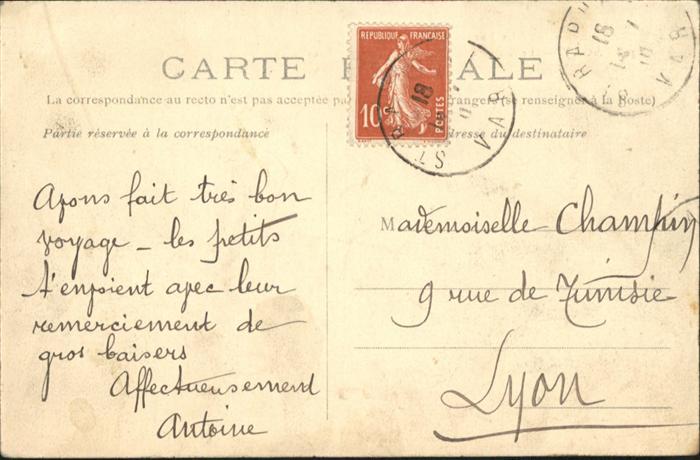 CARTE POSTALE
La correspondance au recto n'est pas acceptée pa
rangers (se renseigner à la Poste)
Partie réservée à la correspondance
dresse du destinataire
REPUBLIQUE FRANÇAISE
10c
POSTES
ST RA
18
VAR
ST RAP
18
VAR
Avons fait très bon
voyage – les petits
t'envoient avec leur
remerciement de
gros baisers
Affectueusement
Antoine
Mademoiselle
9 rue de Tunisie
Lyon